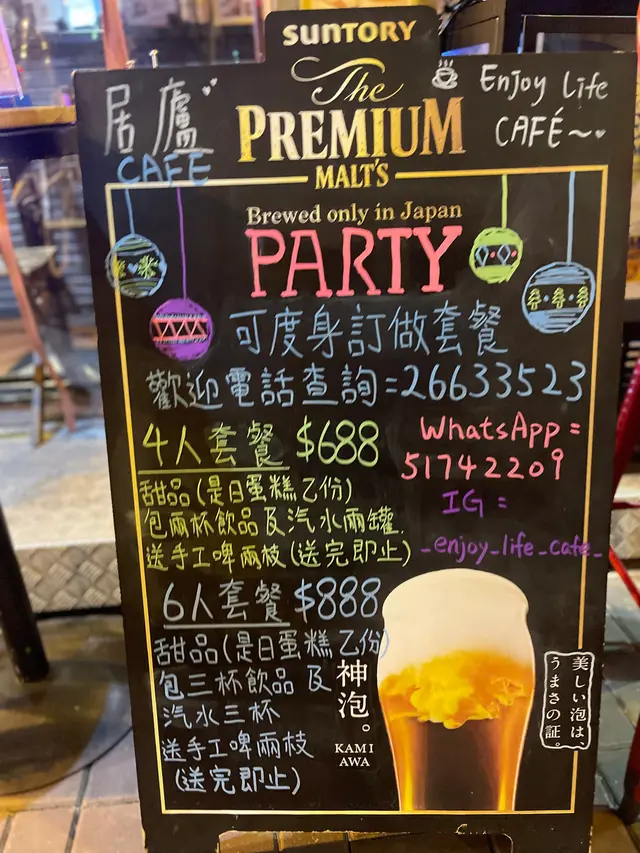 SUNTORY
The
PREMIUM
MALT'S
居廬
CAFE
Enjoy Life
CAFÉ~
Brewed only in Japan
PARTY
可度身訂做套餐
歡迎電話查詢=26633523
4人套餐 $688
甜品(是日蛋糕乙份)
包兩杯飲品及汽水兩罐.
送手工啤兩枝(送完即止)
WhatsApp=
51742209
IG=
_enjoy_life_cafe_
6人套餐 $888
甜品(是日蛋糕乙份)
包三杯飲品及
汽水三杯
送手工啤兩枝
(送完即止)
神泡。
KAMI
AWA
美しい泡は、
うまさの証。